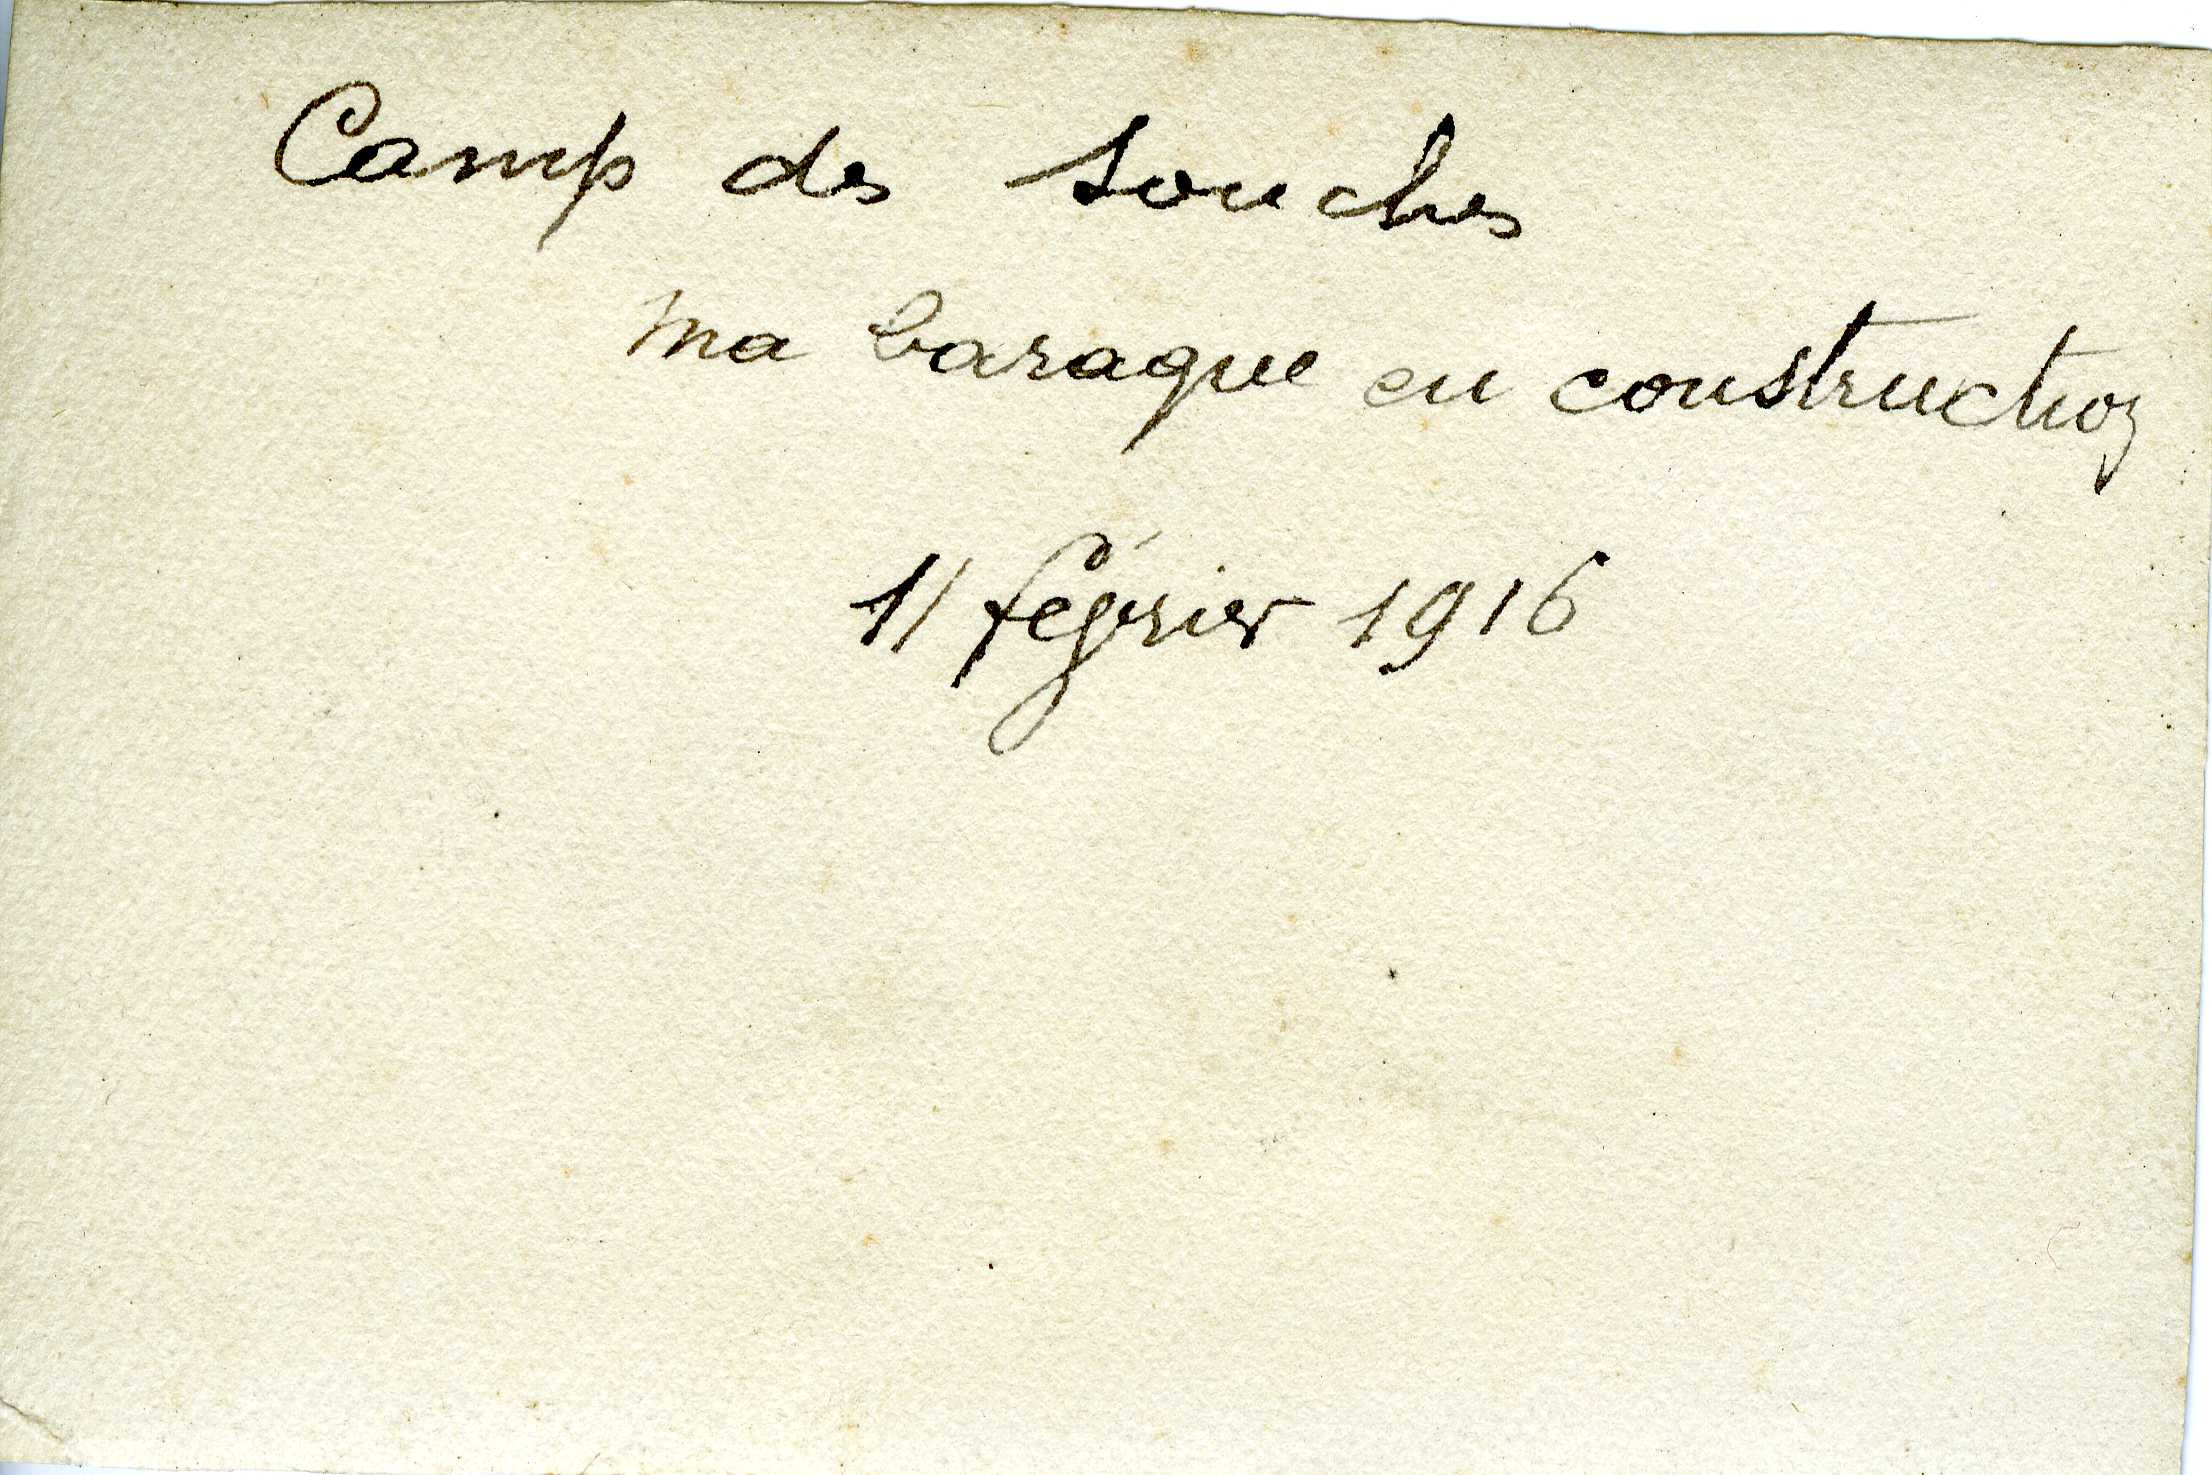 Camp des souches
ma baraque en construction
11 février 1916